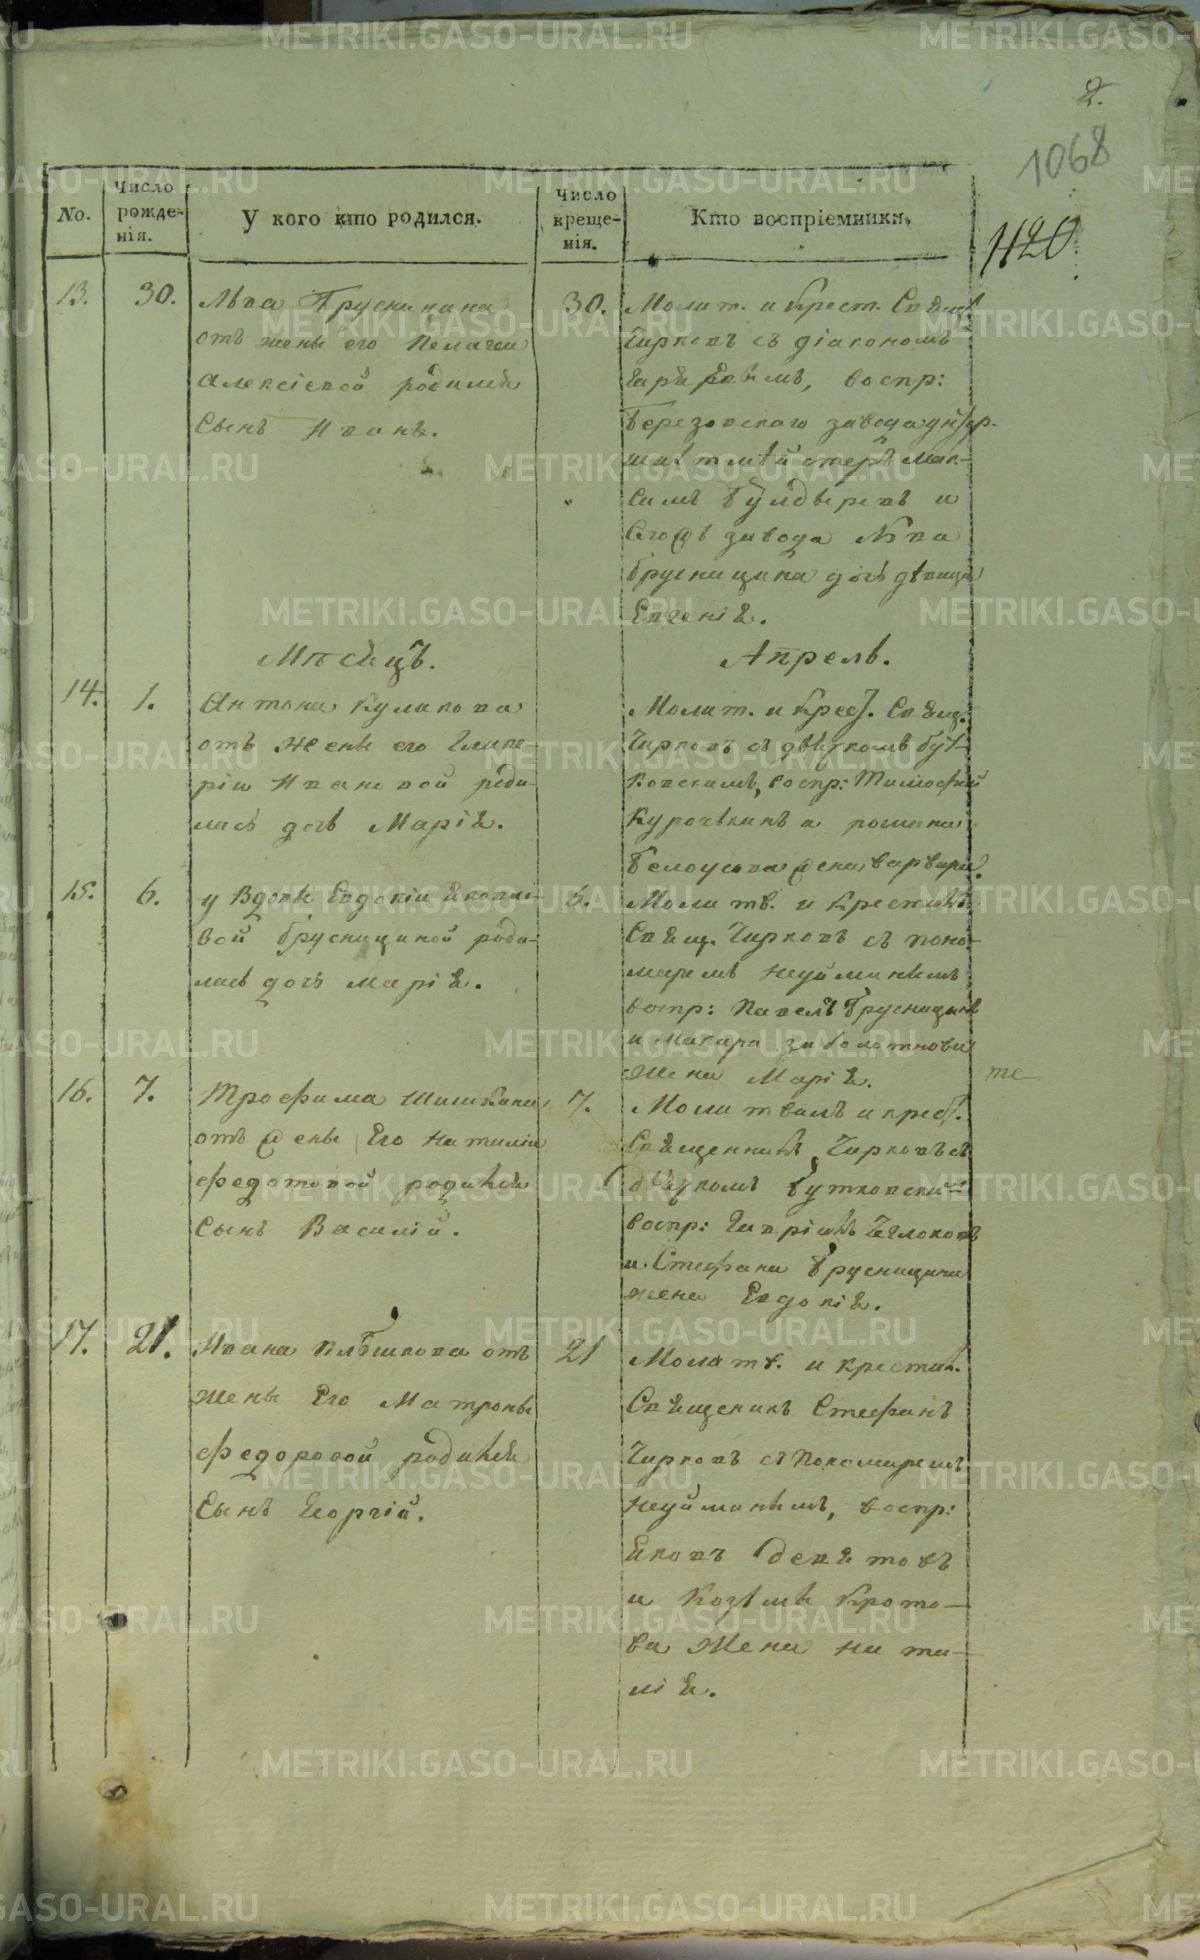 2.
1068
1120
No.
Число рожде-нія.
У кого кто родился.
Число креще-нія.
Кто воспріемники.
13.
30.
Льва Брусницина
отъ жены его Пелагеи
Алексіевой родился
сынъ Иванъ.
30.
Молит. и Крест. Свящ.
Чирковъ съ діакономъ
воспр:
Березовскаго завода унтер-
шихтмейстеръ Мак-
симъ и
сегожъ завода Льва
Брусницина дочь дѣвица
Евгенія.
Мѣсяцъ.
Апрель.
14.
1.
Антона Куликова
отъ жены его Глике-
ріи Ивановой роди-
лась дочь Марія.
Молит. и Крест. Свящ.
Чирковъ съ дьячкомъ Бут-
ковскимъ, воспр: Тимофей
Курочкинъ и Романа
Белоусова жена Варвара.
15.
6.
у Вдовы Евдокіи Яковле-
вой Брусницыной роди-
лась дочь Марія.
6.
Молитв. и Крестилъ
Свящ. Чирковъ съ поно-
маремъ Неуйминымъ
воспр: Павелъ Брусницинъ
и Макара Заболотнова
жена Марія.
те
16.
7.
Трофима Шишкина
отъ жены Его Наталіи
Федотовой родился
сынъ Василій.
7.
Молитвилъ и крест.
Священникъ Чирковъ съ
дьячкомъ Бутковским
воспр: Гавріилъ
и Стефана Брусницина
жена Евдокія.
17.
21.
Ивана Плѣшкова отъ
жены Его Матроны
Федоровой родился
сынъ Георгій.
21
Молитв. и крестил.
Священикъ Стефанъ
Чирковъ съ Пономаремъ
Неуйминымъ, воспр:
Яковъ Девятовъ
и Козьмы Крото-
ва Жена Ната-
лія.
METRIKI.GASO-URAL.RU